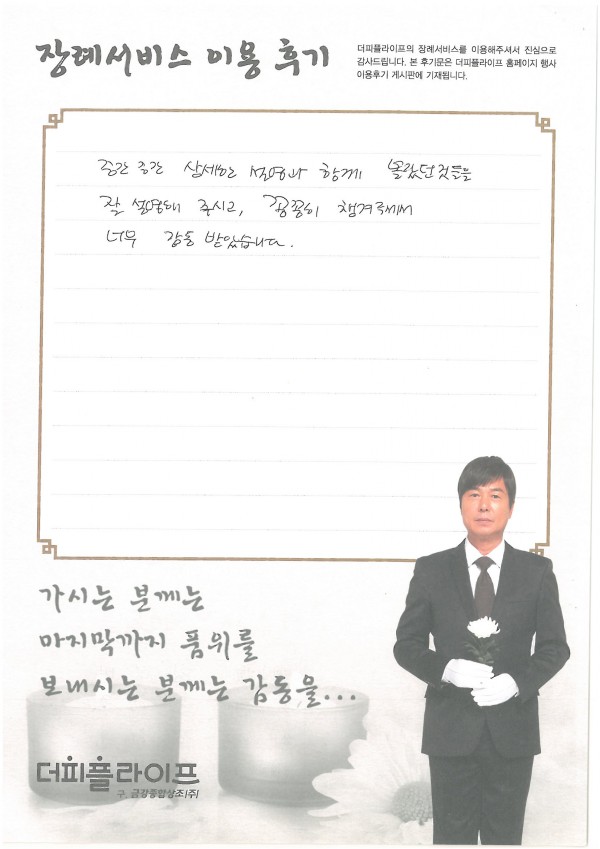 장례서비스 이용 후기
더피플라이프의 장례서비스를 이용해주셔서 진심으로
감사드립니다. 본 후기문은 더피플라이프 홈페이지 행사
이용후기 게시판에 기재됩니다.
중간 중간 상세한 설명과 함께 몰랐던것들을
잘 설명해 주시고, 꼼꼼히 챙겨주셔서
너무 감동 받았습니다.
가시는 분께는
마지막까지 품위를
보내시는 분께는 감동을...
더피플라이프
구. 금강종합상조(주)